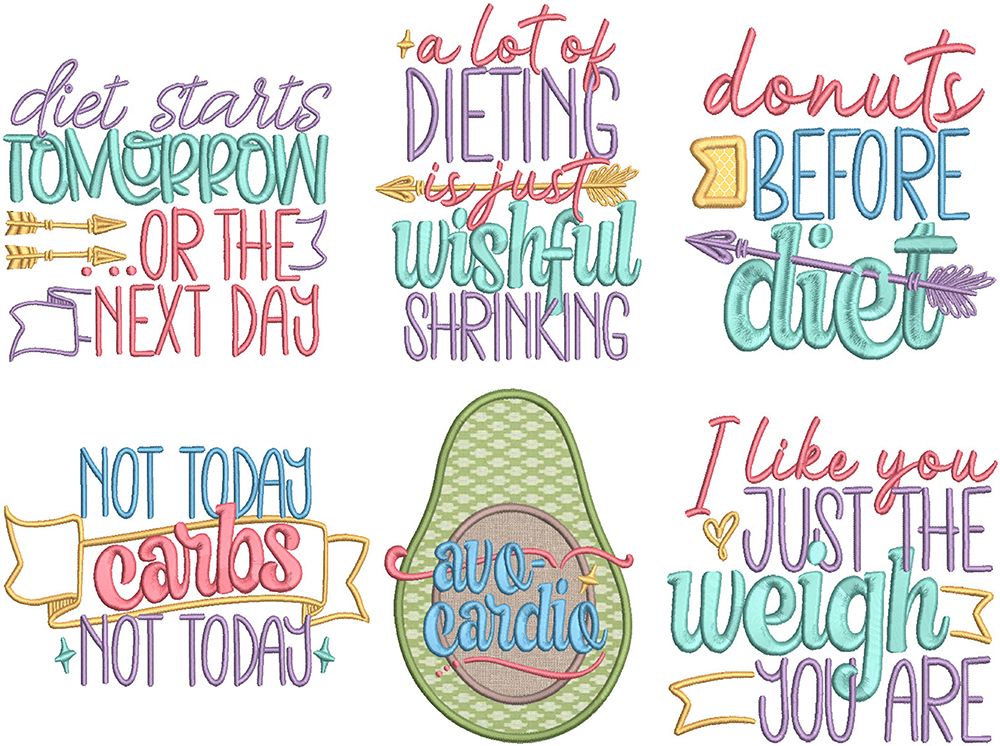 diet starts
TOMORROW
...OR THE
NEXT DAY
a lot of
DIETING
is just
wishful
SHRINKING
donuts
BEFORE
diet
NOT TODAY
carbs
NOT TODAY
avo-
cardio
I like you
JUST THE
weigh
YOU ARE